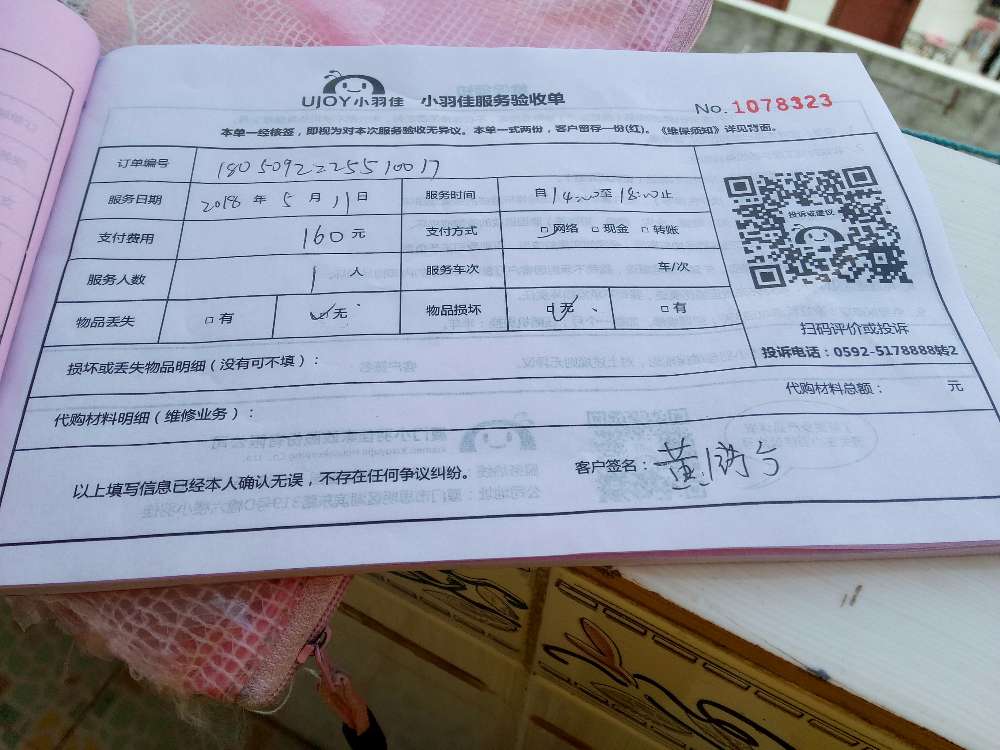 UJOY小羽佳 小羽佳服务验收单
No. 1078323
本单一经核签，即视为对本次服务验收无异议。本单一式两份，客户留存一份(红)。《维保须知》详见背面。
订单编号 1805092225510017
服务日期 2018 年 5 月 11 日 服务时间 自 14:00 至 18:00 止
支付费用 160 元 支付方式 □网络 □现金 □转账
服务人数 1 人 服务车次 车/次
物品丢失 □有 □无 物品损坏 □无 □有
投诉或建议
扫码评价或投诉
投诉电话：0592-5178888转2
损坏或丢失物品明细（没有可不填）：
代购材料明细（维修业务）： 代购材料总额： 元
以上填写信息已经本人确认无误，不存在任何争议纠纷。 客户签名：黄